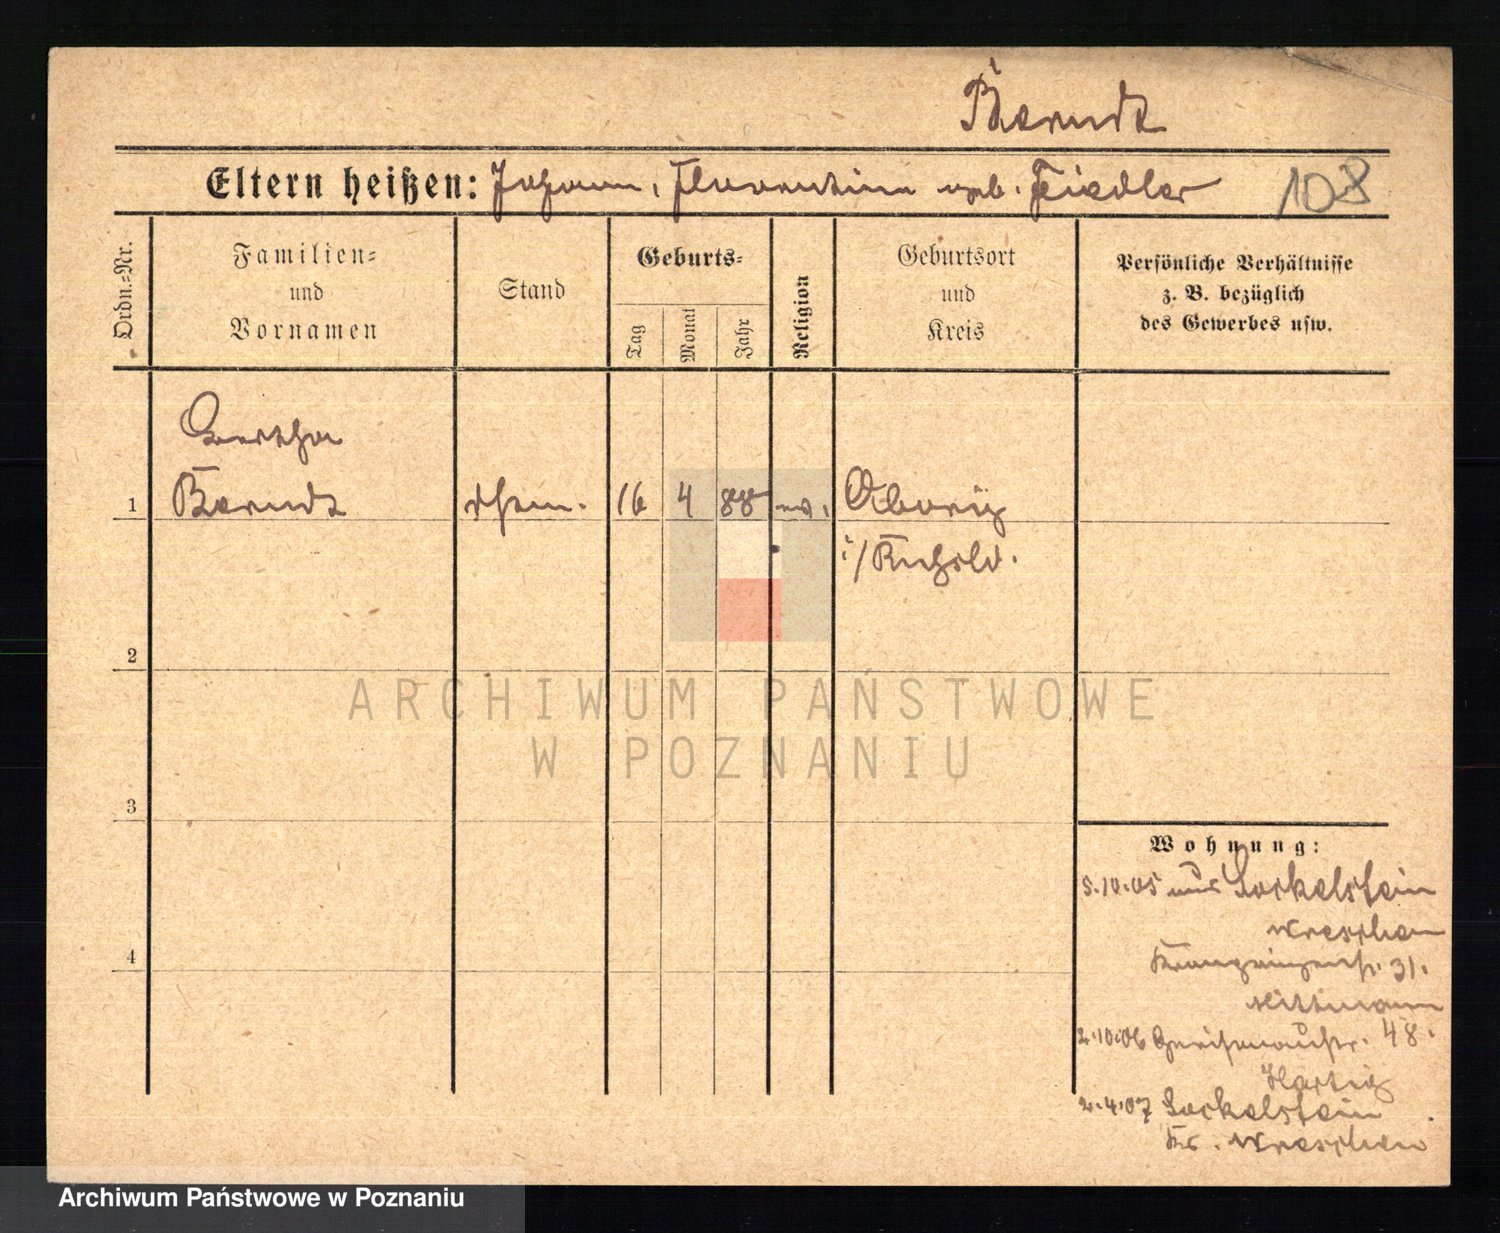 Berndt
Eltern heißen: Johann, Florentine geb. Fiedler 108
Ordn.-Nr.
Familien-
und
Vornamen
Stand
Geburts-
Tag
Monat
Jahr
Religion
Geburtsort
und
Kreis
Persönliche Verhältnisse
z. B. bezüglich
des Gewerbes usw.
Bertha
1 Berndt 16 4 88 ev.
i/Rußld.
2
3
4
Wohnung:
5.10.05 aus Sockelstein
Wreschen
31.
Hittmann
2.10.06 Gneisenaustr. 48.
Hartig
2.4.07 Sockelstein
Kr. Wreschen
ARCHIWUM PAŃSTWOWE
W POZNANIU
Archiwum Państwowe w Poznaniu